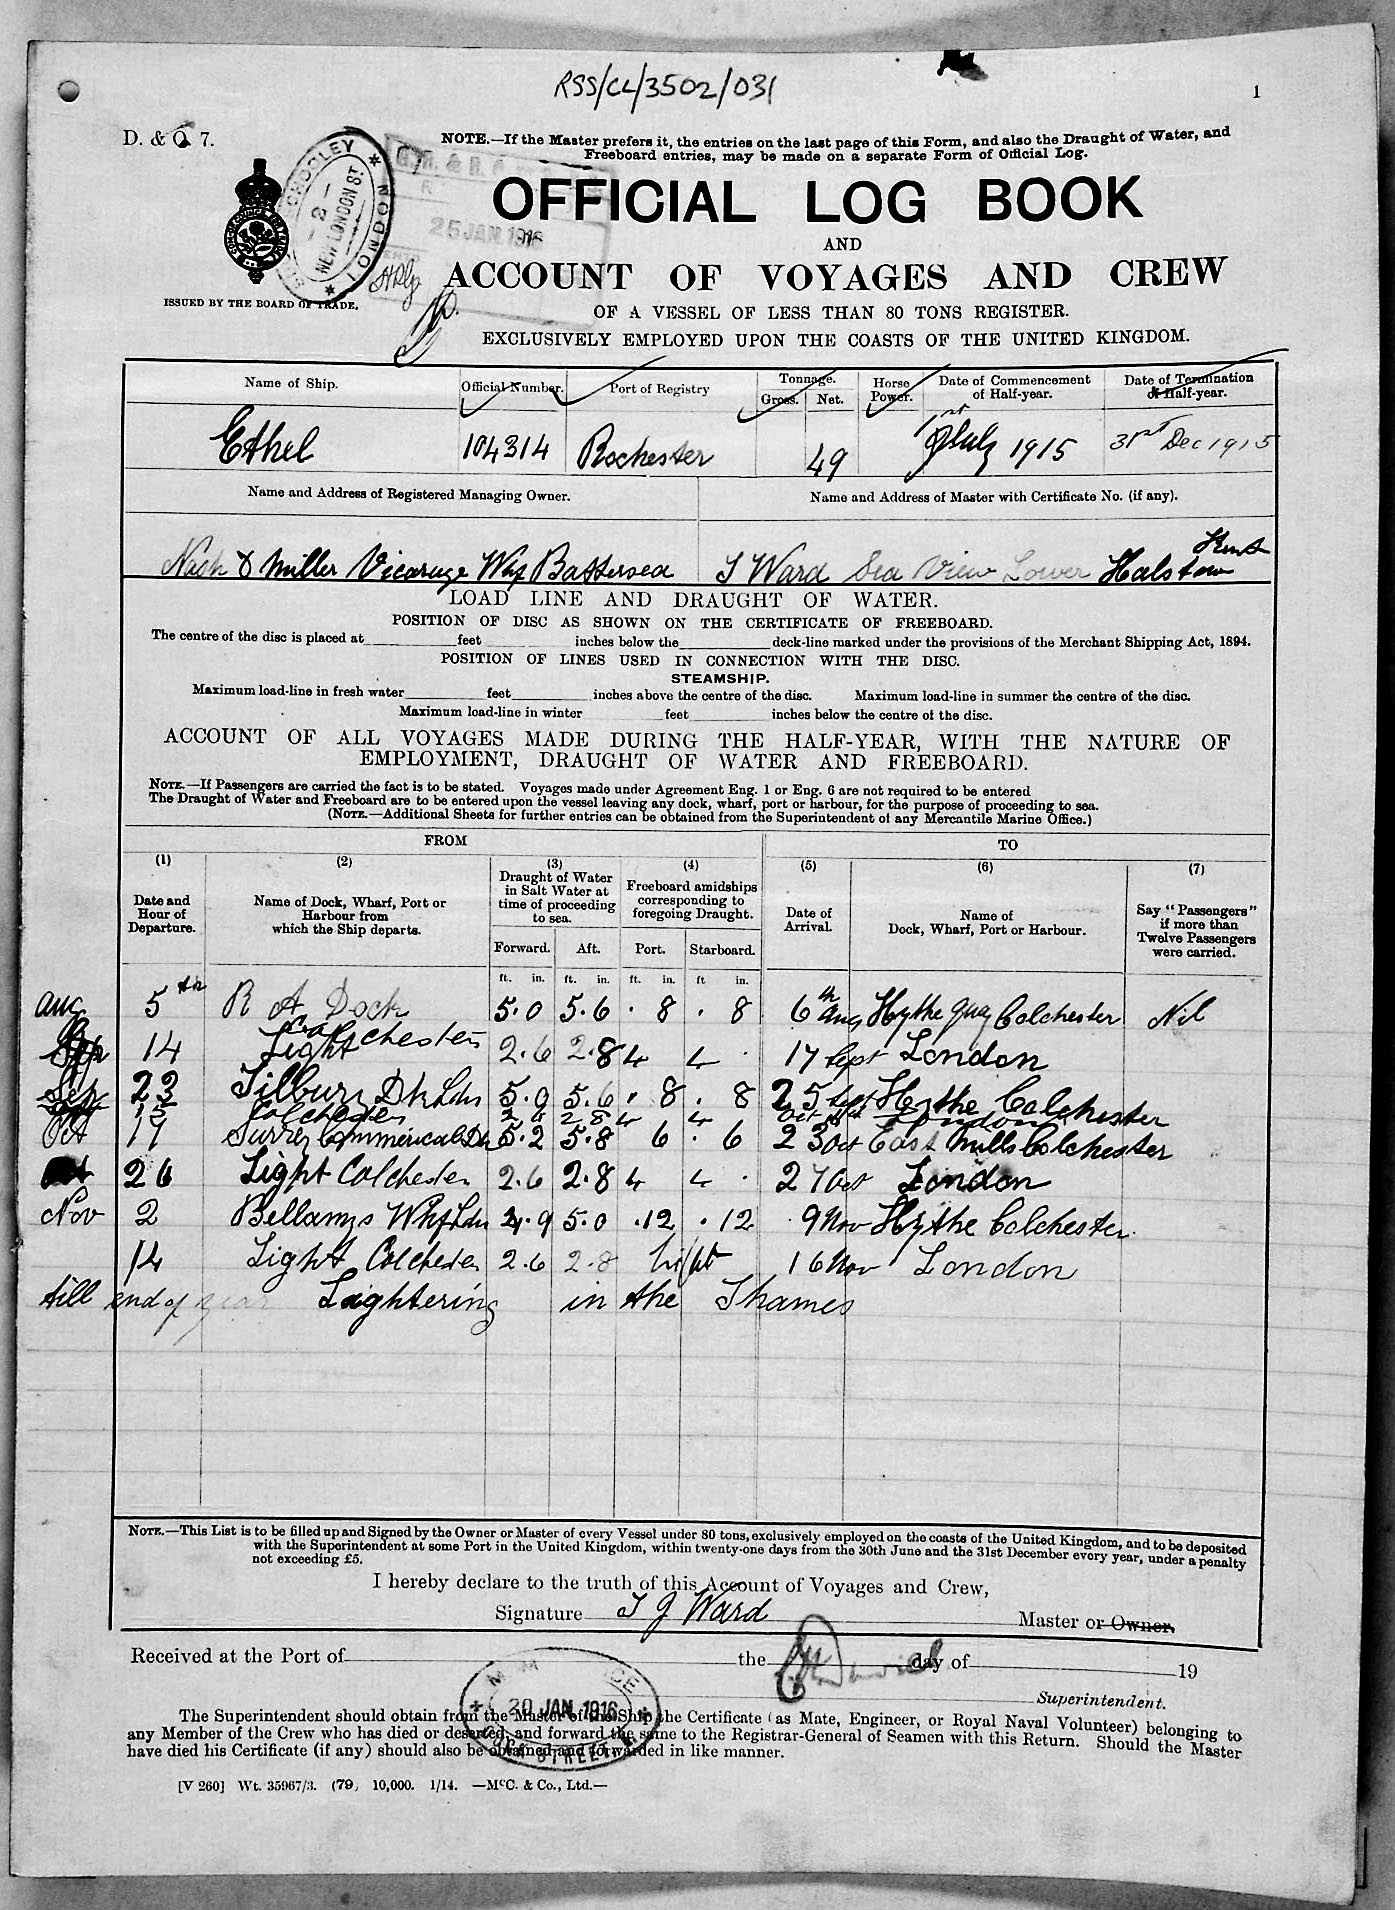 RSS/CL/3502/031
1
D. & O. 7.
NOTE.—If the Master prefers it, the entries on the last page of this Form, and also the Draught of Water, and
Freeboard entries, may be made on a separate Form of Official Log.
CROOLEY
2
NEW LONDON ST
LONDON
25 JAN 1916
OFFICIAL LOG BOOK
AND
ACCOUNT OF VOYAGES AND CREW
ISSUED BY THE BOARD OF TRADE.
OF A VESSEL OF LESS THAN 80 TONS REGISTER.
EXCLUSIVELY EMPLOYED UPON THE COASTS OF THE UNITED KINGDOM.
Name of Ship. Official Number. Port of Registry Tonnage. Gross. Net. Horse Power. Date of Commencement of Half-year. Date of Termination of Half-year.
Ethel 104314 Rochester 49 1st July 1915 31st Dec 1915
Name and Address of Registered Managing Owner. Name and Address of Master with Certificate No. (if any).
Nash & Miller Vicarage Whf Battersea J Ward Sea View Lower Halstow Kent
LOAD LINE AND DRAUGHT OF WATER.
POSITION OF DISC AS SHOWN ON THE CERTIFICATE OF FREEBOARD.
The centre of the disc is placed at feet inches below the deck-line marked under the provisions of the Merchant Shipping Act, 1894.
POSITION OF LINES USED IN CONNECTION WITH THE DISC.
STEAMSHIP.
Maximum load-line in fresh water feet inches above the centre of the disc. Maximum load-line in summer the centre of the disc.
Maximum load-line in winter feet inches below the centre of the disc.
ACCOUNT OF ALL VOYAGES MADE DURING THE HALF-YEAR, WITH THE NATURE OF
EMPLOYMENT, DRAUGHT OF WATER AND FREEBOARD.
NOTE.—If Passengers are carried the fact is to be stated. Voyages made under Agreement Eng. 1 or Eng. 6 are not required to be entered
The Draught of Water and Freeboard are to be entered upon the vessel leaving any dock, wharf, port or harbour, for the purpose of proceeding to sea.
(NOTE.—Additional Sheets for further entries can be obtained from the Superintendent of any Mercantile Marine Office.)
FROM TO
(1) (2) (3) (4) (5) (6) (7)
Date and Hour of Departure. Name of Dock, Wharf, Port or Harbour from which the Ship departs. Draught of Water in Salt Water at time of proceeding to sea. Freeboard amidships corresponding to foregoing Draught. Date of Arrival. Name of Dock, Wharf, Port or Harbour. Say "Passengers" if more than Twelve Passengers were carried.
Forward. Aft. Port. Starboard.
ft. in. ft. in. ft. in. ft in.
Aug 5th R A Dock 5.0 5.6 . 8 . 8 6th Aug Hythe Quay Colchester Nil
Sep 14 Light Colchester 2.6 2.8 4 4 . 17 Sept London
Sep 22 Tilbury Dk Ldn 5.0 5.6 . 8 . 8 25 Sept Hythe Colchester
Colchester 2 6 2 8 4 4 Oct London
Oct 19 Surrey Commerical Dk 5.2 5.8 6 . 6 23 Oct East Mills Colchester
Oct 26 Light Colchester 2.6 2.8 4 4 . 27 Oct London
Nov 2 Bellamys Whf Ldn 4.9 5.0 .12 .12 9 Nov Hythe Colchester
14 Light Colchester 2.6 2.8 light 16 Nov London
till end of year Lightering in the Thames
NOTE.—This List is to be filled up and Signed by the Owner or Master of every Vessel under 80 tons, exclusively employed on the coasts of the United Kingdom, and to be deposited
with the Superintendent at some Port in the United Kingdom, within twenty-one days from the 30th June and the 31st December every year, under a penalty
not exceeding £5.
I hereby declare to the truth of this Account of Voyages and Crew,
Signature J J Ward Master or Owner.
Received at the Port of the day of 19
Superintendent.
20 JAN. 1916
The Superintendent should obtain from the Master of the Ship the Certificate (as Mate, Engineer, or Royal Naval Volunteer) belonging to
any Member of the Crew who has died or deserted, and forward the same to the Registrar-General of Seamen with this Return. Should the Master
have died his Certificate (if any) should also be obtained and forwarded in like manner.
[V 260] Wt. 35967/3. (79) 10,000. 1/14. —McC. & Co., Ltd.—